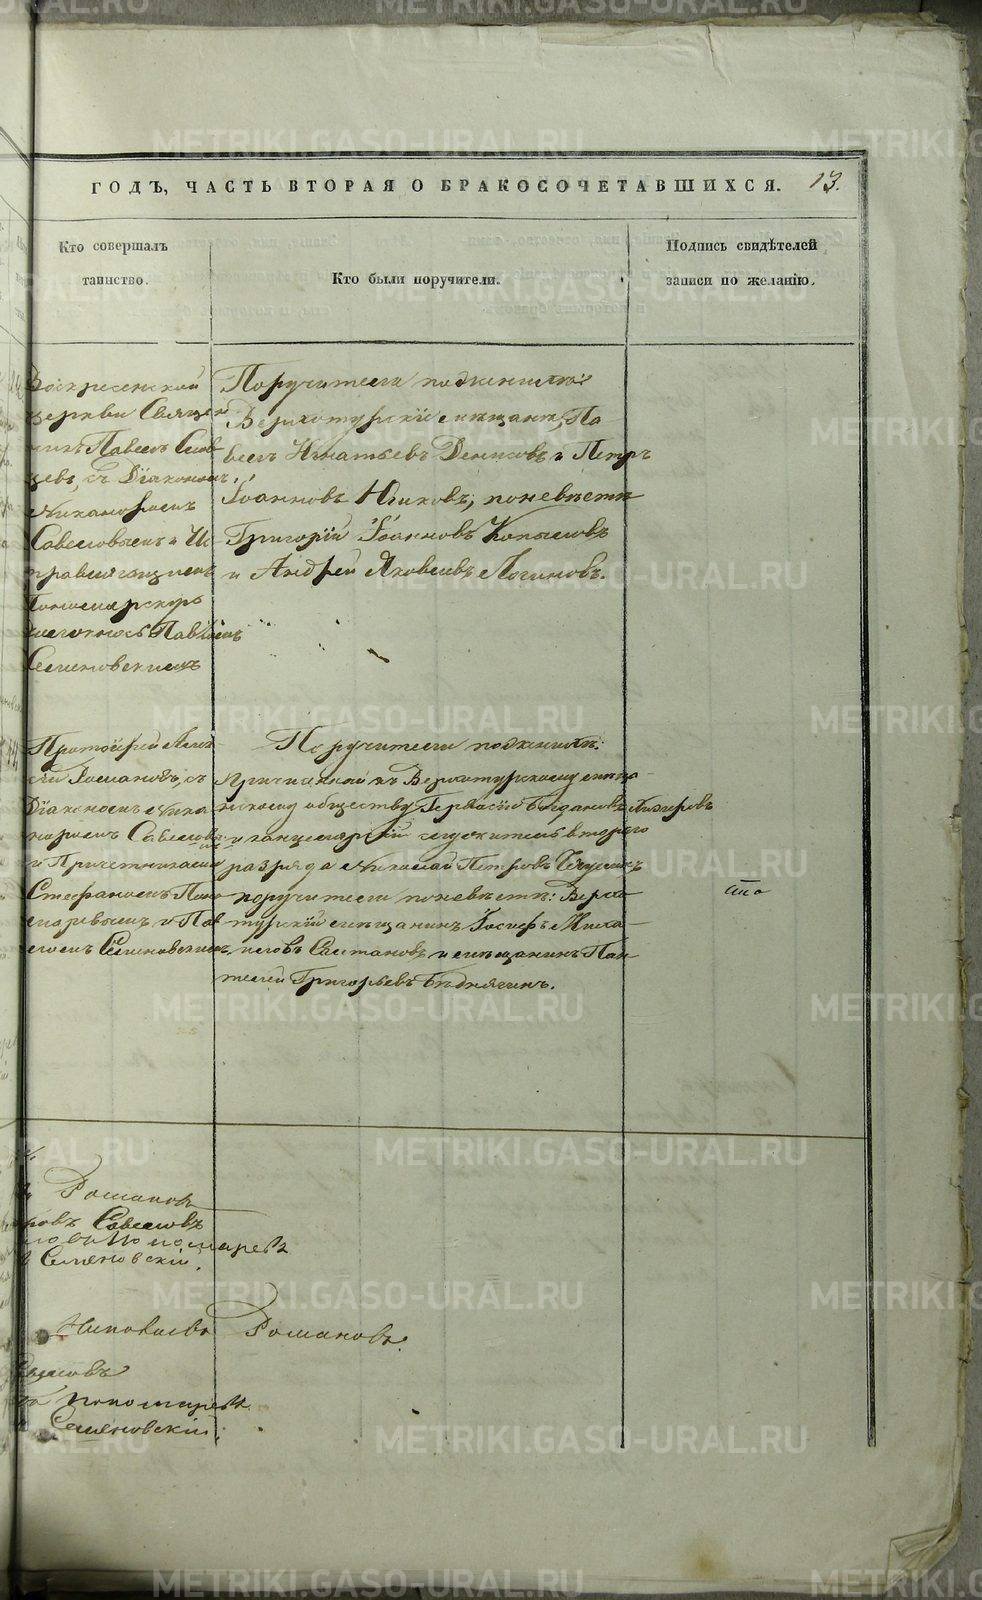 ГОДЪ, ЧАСТЬ ВТОРАЯ О БРАКОСОЧЕТАВШИХСЯ. 13.
Кто совершалъ
таинство.
Кто были поручители.
Подпись свидѣтелей
записи по желанію.
Воскресенской
церкви Священ
никъ Павелъ
цевъ, съ Діакономъ
Никаноромъ
Савеловымъ и Ис
правляющимъ
Пономарскую
должность Павломъ
Семеновскимъ
Поручители по женихѣ:
Верхотурскіе мѣщане, Па
велъ Игнатьевъ Денисовъ и Петръ
Іоанновъ по невѣстѣ
Григорій Іоанновъ Копыловъ
и Андрей Яковлевъ Логиновъ.
Протоіерей
Романовъ, съ
Діакономъ Ника
норомъ Савеловымъ
и Причетниками
Стефаномъ Поно
маревымъ и Пав
ломъ Семеновскимъ
Поручители по женихѣ:
Причисленный къ Верхотурскому мѣща
нскому обществу Гервасій Богдановъ
и канцелярскій служитель втораго
разряда Николай Петровъ
поручители по невѣстѣ: Верхо
турскій мѣщанинъ Іосифъ Миха
иловъ и мѣщанинъ Пан
телей Григорьевъ Бѣднягинъ.
Романовъ
Савеловъ
Пономаревъ
Семеновскій.
Романовъ.
Пономаревъ
Семеновскій.
METRIKI.GASO-URAL.RU